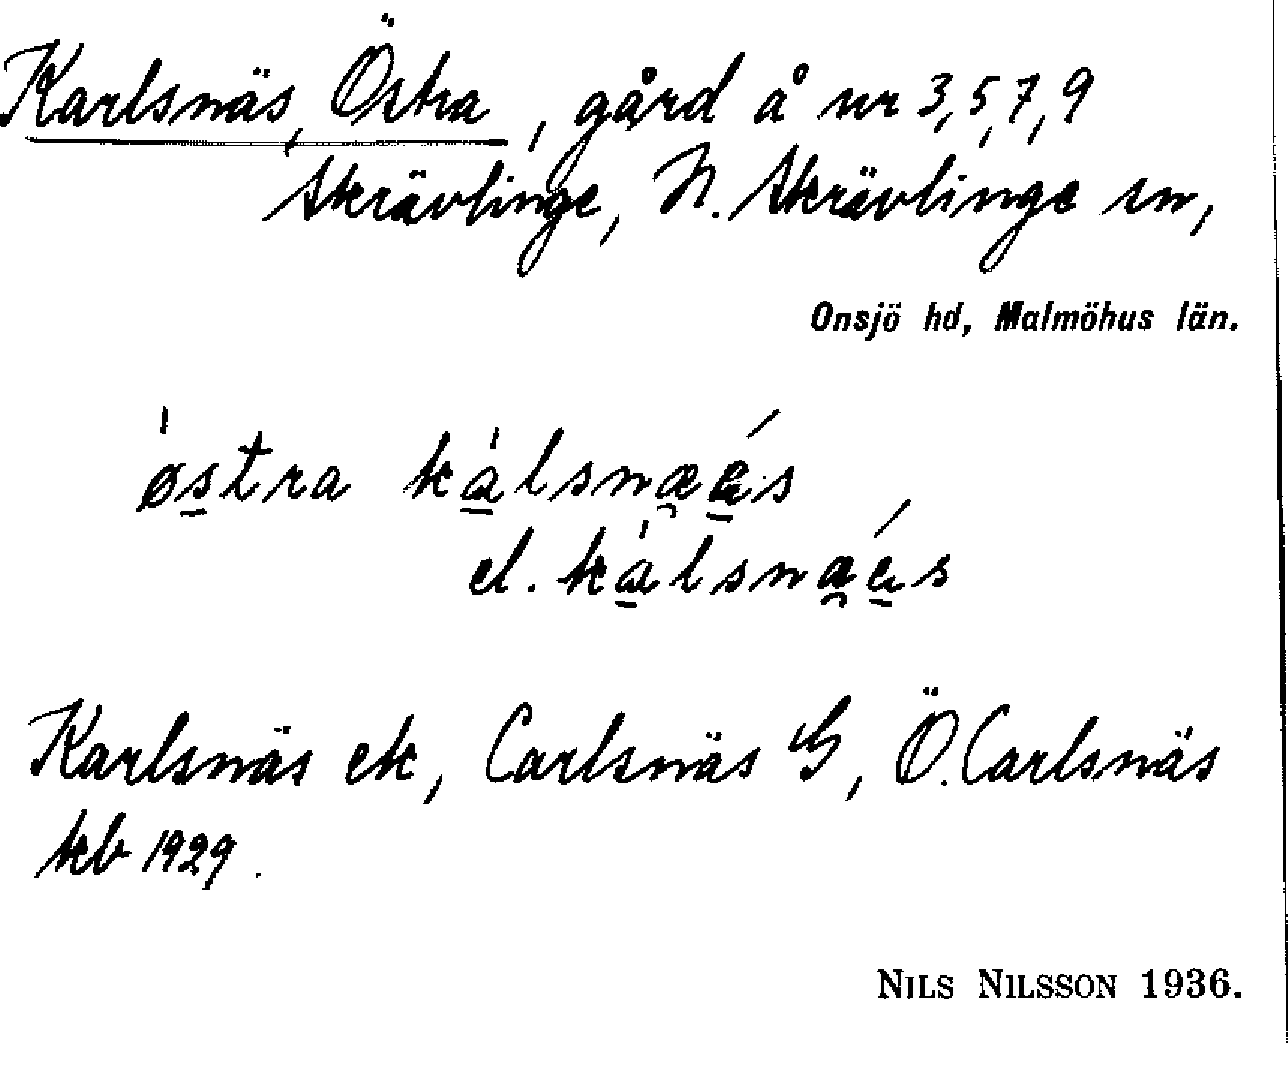 Karlsnäs, Östra, gård å nr 3,5,7,9
Skrävlinge, N. Skrävlinge sn,
Onsjö hd, Malmöhus län.
ǿstra kálsnæǽs
el. kálsnaǽs
Karlsnäs ek, Carlsnäs G, Ö. Carlsnäs
kb 1929.
NILS NILSSON 1936.